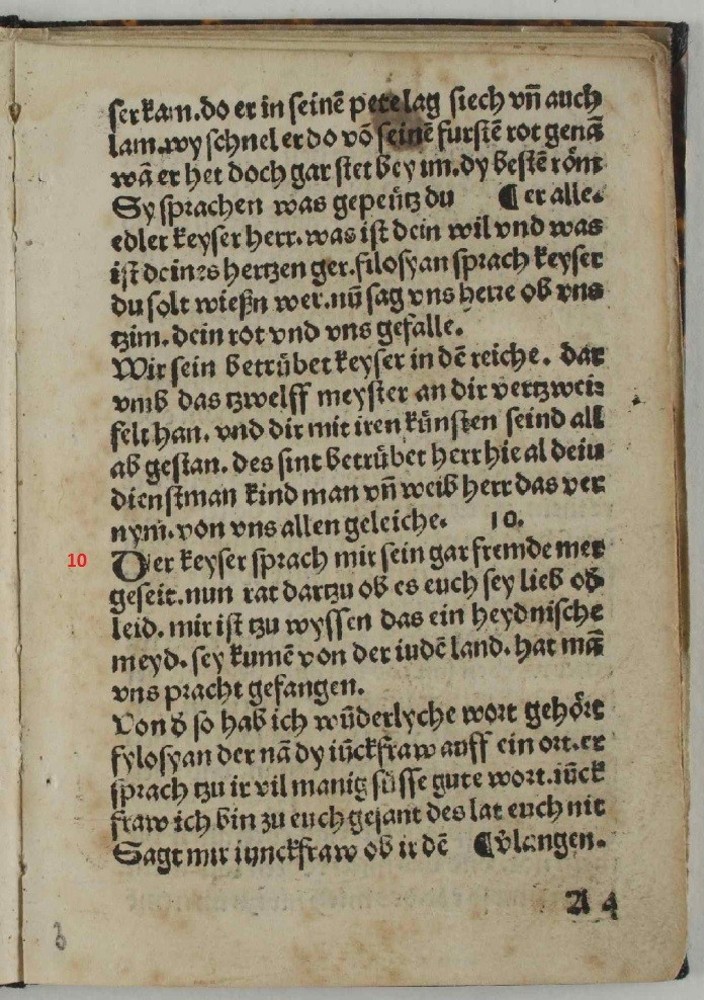 ser kam. do er in seinē pete lag siech vn̄ auch
lam. wy schnel er do vō seinē furstē rot genā
wā er het doch gar stet bey im. dy bestē röm
Sy sprachen was gepeütz du ¶ er alle.
edler keyser herr. was ist dein wil vnd was
ist deines hertzen ger. filosyan sprach keyser
du solt wießn wer. nū sag vns herre ob vns
tzim. dein rot vnd vns gefalle.
Wir sein betrübet keyser in dē reiche. dar
vmb das tzwelff meyster an dir vertzwei⸗
felt han. vnd dir mit iren künsten seind all
ab gestan. des sint betrübet herr hie al dein
dienstman kind man vn̄ weib herr das ver
nym. von vns allen geleiche. 10.
10 Der keyser sprach mir sein gar fremde mer
geseit. nun rat dartzu ob es euch sey lieb od̄
leid. mir ist tzu wyssen das ein heydnische
meyd. sey kumē von der iudē land. hat mā
vns pracht gefangen.
Von d̄ so hab ich wūderlyche wort gehört
fylosyan der nā dy iūckfraw auff ein ort. er
sprach tzu ir vil manig süsse gute wort. iūck
fraw ich bin zu euch gesant des lat euch nit
Sagt mir iunckfraw ob ir dē ¶ v̄langen.
A 4